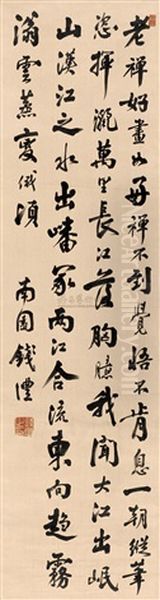 老禪好畫如好禪不到覺悟不肯息一朝縱筆
恣揮灑萬里長江蕩胸臆我聞大江出岷
山漢江之水出嶓冢兩江合流東向趨霧
滃雲蒸變俄頃
南園錢灃